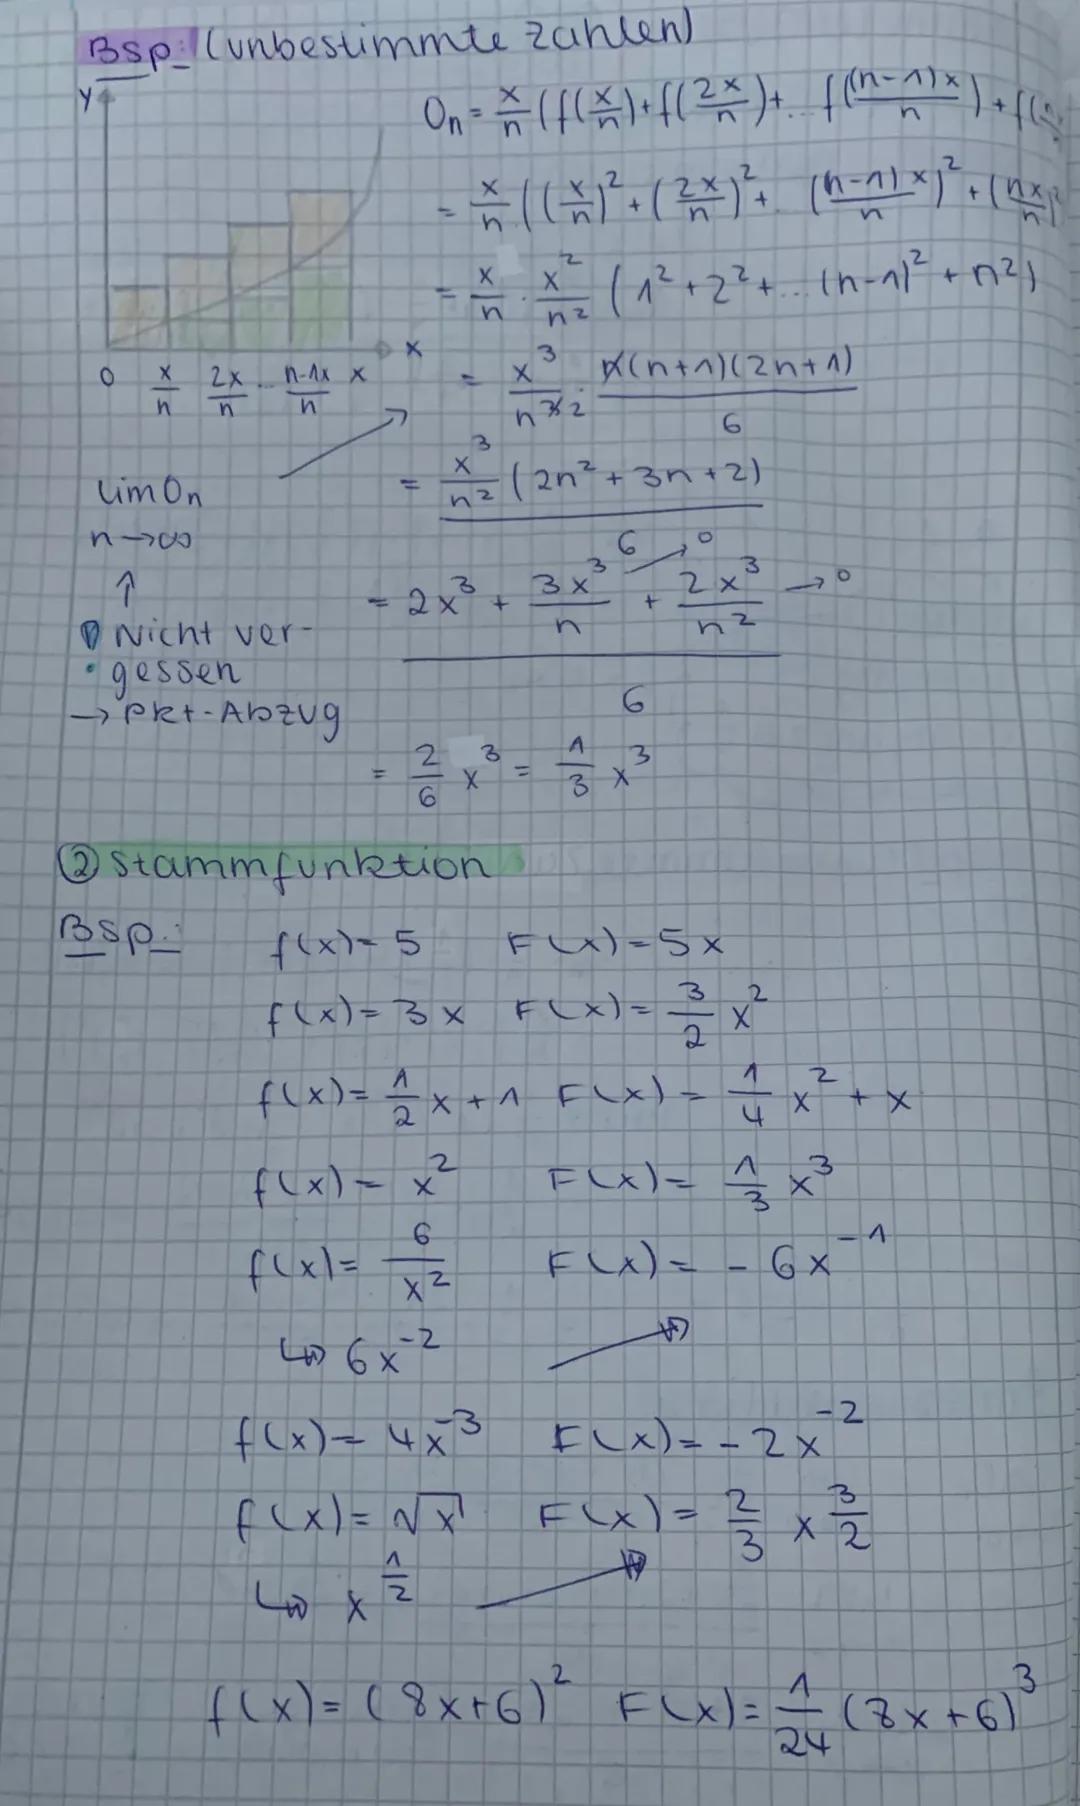 Bsp: (unbestimmte Zahlen)
y
O_n = x/n (f(x/n) + f(2x/n) + ... f((n-1)x/n) + f(
= x/n ((x/n)² + (2x/n)² + ... ((n-1)x/n)² + (nx/n)²
= x/n · x²/n² (1² + 2² + ... (n-1)² + n²)
x
0 x/n 2x/n ... n-1x/n x
= x³/n³ 2 · n(n+1)(2n+1)/6
lim O_n
n→∞
= x³/n² (2n² + 3n + 2)/6
↑
Nicht ver-
gessen
→ Pkt-Abzug
= (2x³ + 3x³/n → 0 + 2x³/n² → 0)/6
= 2/6 x³ = 1/3 x³
② Stammfunktion
Bsp.: f(x) = 5 F(x) = 5x
f(x) = 3x F(x) = 3/2 x²
f(x) = 1/2 x + 1 F(x) = 1/4 x² + x
f(x) = x² F(x) = 1/3 x³
f(x) = 6/x² F(x) = - 6x⁻¹
↳ 6x⁻²
f(x) = 4x⁻³ F(x) = - 2x⁻²
f(x) = √x F(x) = 2/3 x^(3/2)
↳ x^(1/2)
f(x) = (8x+6)² F(x) = 1/24 (8x+6)³